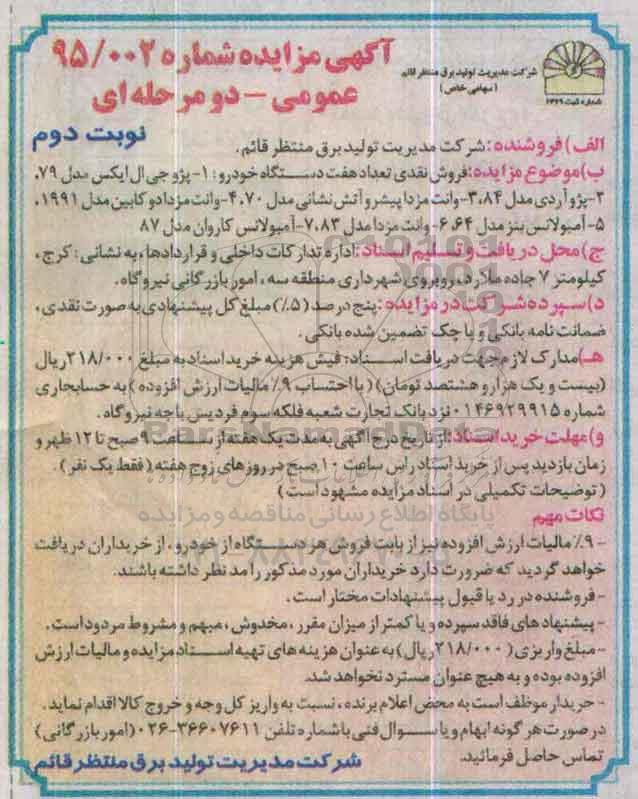 آگهی مزایده شماره ۹۵/۰۰۲
عمومی - دو مرحله ای
نوبت دوم
شرکت مدیریت تولید برق منتظر قائم
(سهامی خاص)
شماره ثبت ۱۳۶۹
الف) فروشنده: شرکت مدیریت تولید برق منتظر قائم.
ب) موضوع مزایده: فروش نقدی تعداد هفت دستگاه خودرو: ۱- پژو جی ال ایکس مدل ۷۹،
۲- پژو آردی مدل ۳،۸۴- وانت مزدا پیشرو آتش نشانی مدل ۴،۷۰- وانت مزدا دو کابین مدل ۱۹۹۱،
۵- آمبولانس بنز مدل ۶،۶۴- وانت مزدا مدل ۷،۸۳- آمبولانس کاروان مدل ۸۷
ج) محل دریافت و تسلیم اسناد: اداره تدارکات داخلی و قراردادها، به نشانی: کرج،
کیلومتر ۷ جاده ملارد، روبروی شهرداری منطقه سه، امور بازرگانی نیروگاه.
د) سپرده شرکت در مزایده: پنج درصد (۵٪) مبلغ کل پیشنهادی به صورت نقدی،
ضمانت نامه بانکی و یا چک تضمین شده بانکی.
هـ) مدارک لازم جهت دریافت اسناد: فیش هزینه خرید اسناد به مبلغ ۲۱۸/۰۰۰ ریال
(بیست و یک هزار و هشتصد تومان) (با احتساب ۹٪ مالیات ارزش افزوده) به حساب جاری
شماره ۰۱۴۶۹۲۹۹۱۵ نزد بانک تجارت شعبه فلکه سوم فردیس باجه نیروگاه.
و) مهلت خرید اسناد: از تاریخ درج آگهی به مدت یک هفته از ساعت ۹ صبح تا ۱۲ ظهر و
زمان بازدید پس از خرید اسناد راس ساعت ۱۰ صبح در روزهای زوج هفته (فقط یک نفر).
(توضیحات تکمیلی در اسناد مزایده مشهود است)
نکات مهم
- ۹٪ مالیات ارزش افزوده نیز از بابت فروش هر دستگاه از خودرو، از خریداران دریافت
خواهد گردید که ضرورت دارد خریداران مورد مذکور را مد نظر داشته باشند.
- فروشنده در رد یا قبول پیشنهادات مختار است.
- پیشنهاد های فاقد سپرده و یا کمتر از میزان مقرر، مخدوش، مبهم و مشروط مردود است.
- مبلغ واریزی (۲۱۸/۰۰۰ ریال) به عنوان هزینه های تهیه اسناد مزایده و مالیات ارزش
افزوده بوده و به هیچ عنوان مسترد نخواهد شد.
- خریدار موظف است به محض اعلام برنده، نسبت به واریز کل وجه و خروج کالا اقدام نماید.
در صورت هر گونه ابهام و یا سوال فنی با شماره تلفن ۳۶۶۰۷۶۱۱-۰۲۶ (امور بازرگانی)
تماس حاصل فرمائید.
شرکت مدیریت تولید برق منتظر قائم
ParsNamadData
پایگاه اطلاع رسانی مناقصه و مزایده